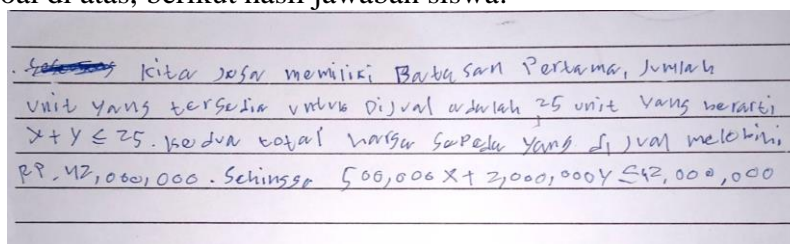 oal di atas, berikut hasil jawaban siswa:
. Kita juga memiliki Batasan Pertama, Jumlah
unit yang tersedia untuk Dijual adalah 25 unit yang berarti
x + y ≤ 25. kedua total harga sepeda yang di jual melebihi,
RP. 42,000,000. Sehingga 500,000 X + 2,000,000 Y ≤ 42,000,000